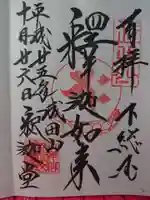 奉拝 下総
釋迦如来
平成廿五年 成田山
十月廿六日 釈迦堂